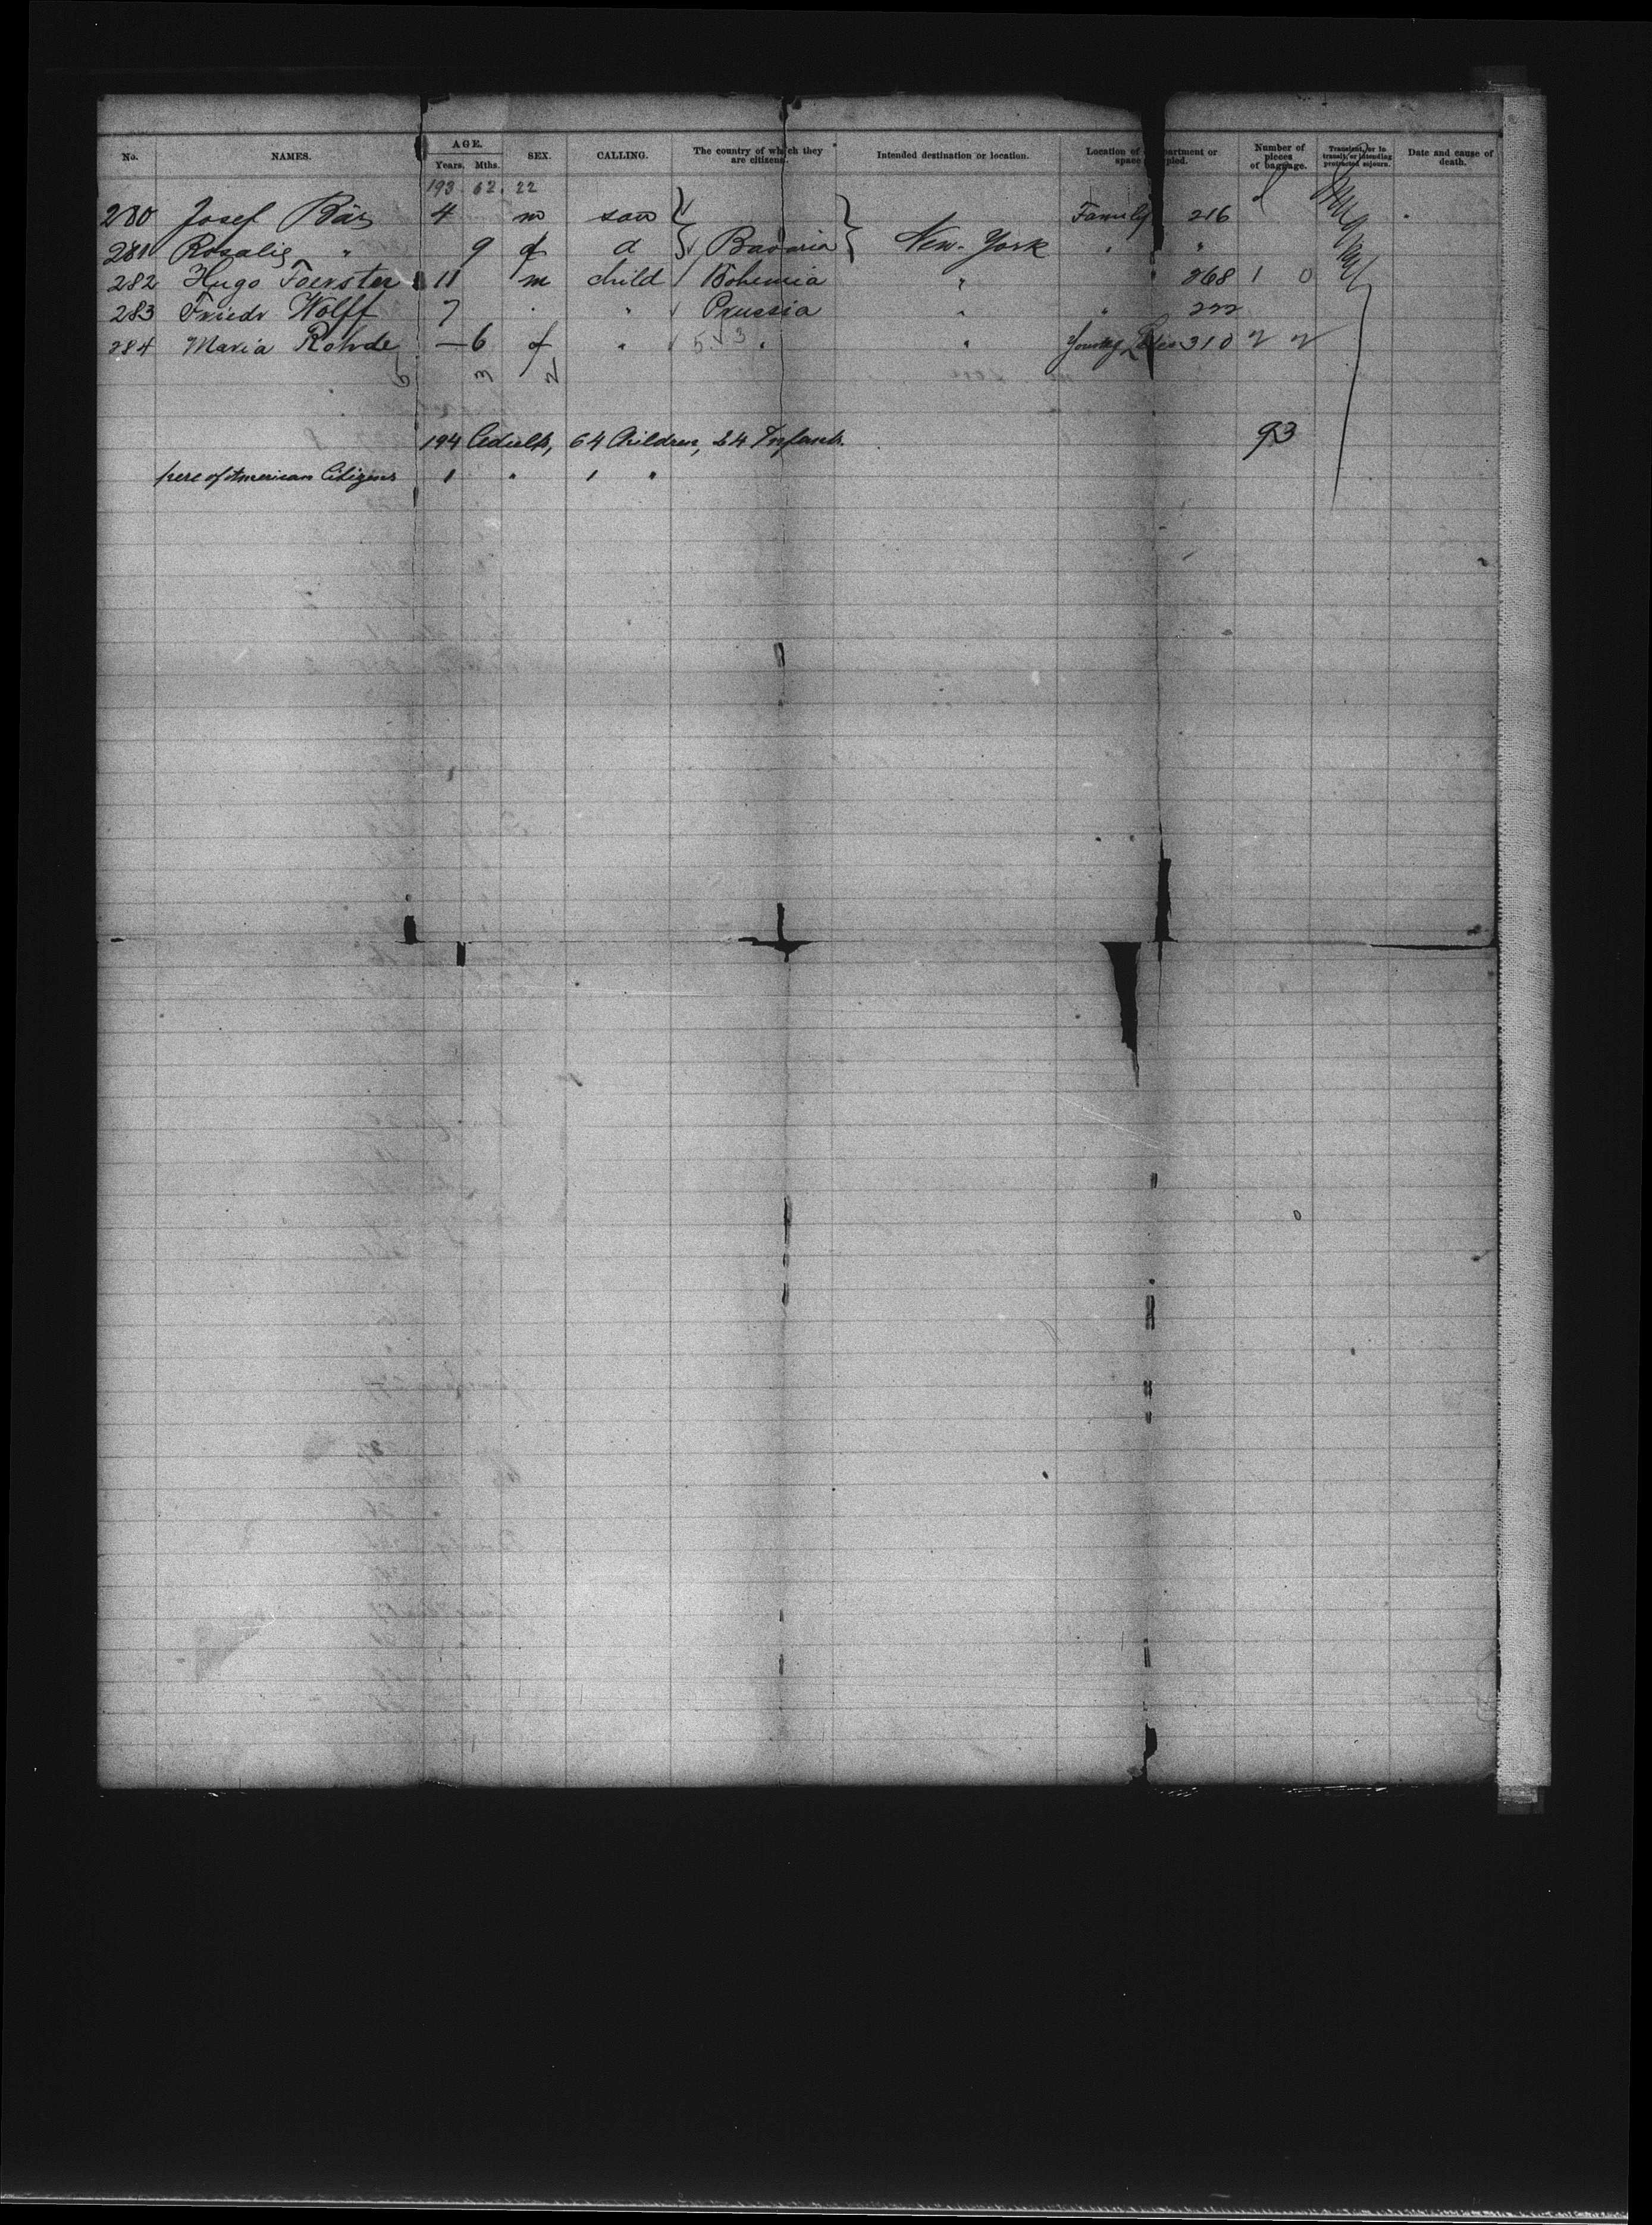 No. NAMES. AGE. Years. Mths. SEX. CALLING. The country of which they are citizens. Intended destination or location. Location of partment or space pied. Number of pieces of baggage. Transient, or in transit, or intending protracted sojourn. Date and cause of death.
193 62. 22
280 Josef Bär 4 m son Family 216
281 Rosalie " 9 f d Bavaria New-York " "
282 Hugo Foerster 11 m child Bohemia " " 268 1 0
283 Friedr Wolff 7 " " Prussia " " 222
284 Maria Rohde — 6 f " 53 " " 310 2 2
6 3 2
194 Adults, 64 Children, 24 Infants. 93
here of American Citizens 1 " 1 "